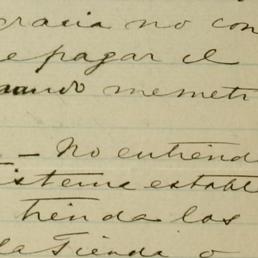 cracia no con
e pagar el
ando memetr
- No entiend
istema establ
tienda los
la tienda o